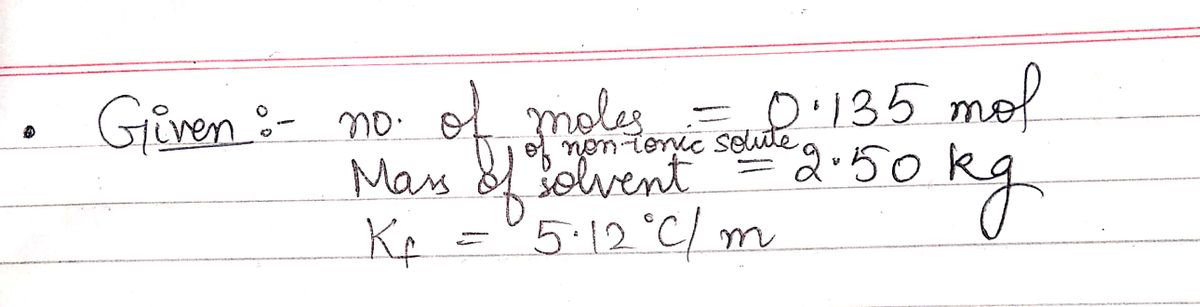 • Given :- no. of moles = 0.135 mol
of non-ionic solute
Mass of solvent = 2.50 kg
Kf = 5.12 °C/m